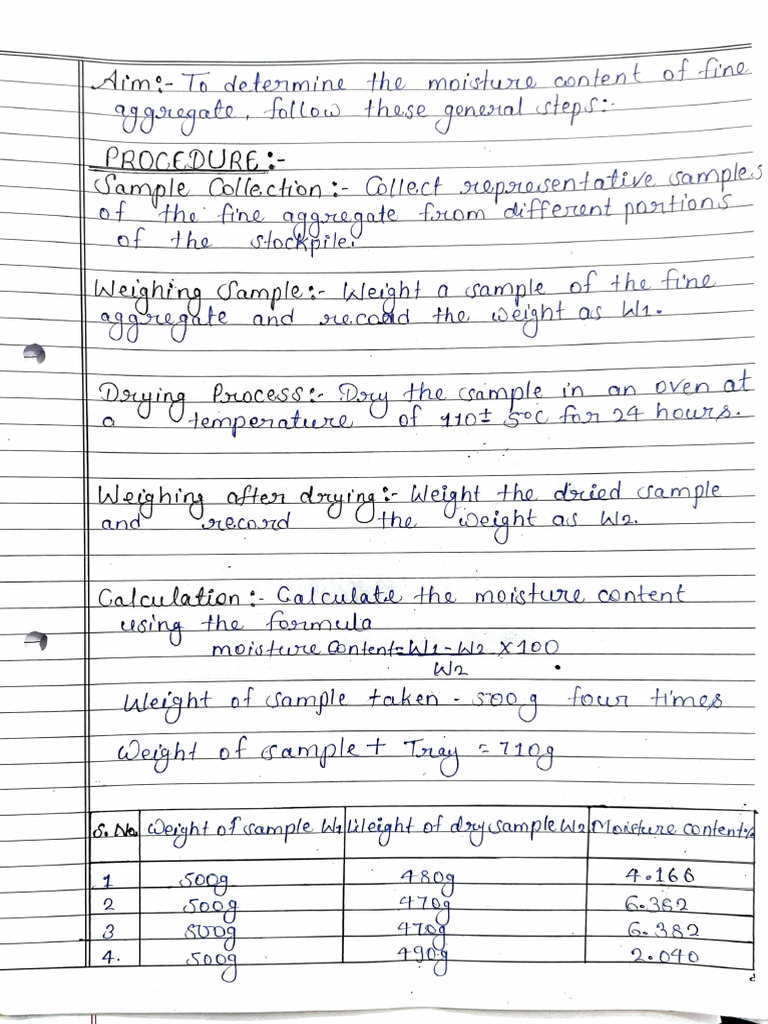 Aim:- To determine the moisture content of fine
aggregate, follow these general steps:-
PROCEDURE:-
Sample Collection:- Collect representative samples
of the fine aggregate from different portions
of the stockpile.
Weighing Sample:- Weight a sample of the fine
aggregate and record the weight as W1.
Drying Process:- Dry the sample in an oven at
a temperature of 110± 5°C for 24 hours.
Weighing after drying:- Weight the dried sample
and record the weight as W2.
Calculation:- Calculate the moisture content
using the formula
moisture content = W1 - W2 X 100
W2
Weight of sample taken - 500g four times
Weight of sample + Tray = 710g
S. No. Weight of sample W1 Weight of dry sample W2 Moisture content%
1 500g 480g 4.166
2 500g 470g 6.382
3 500g 470g 6.382
4. 500g 490g 2.040